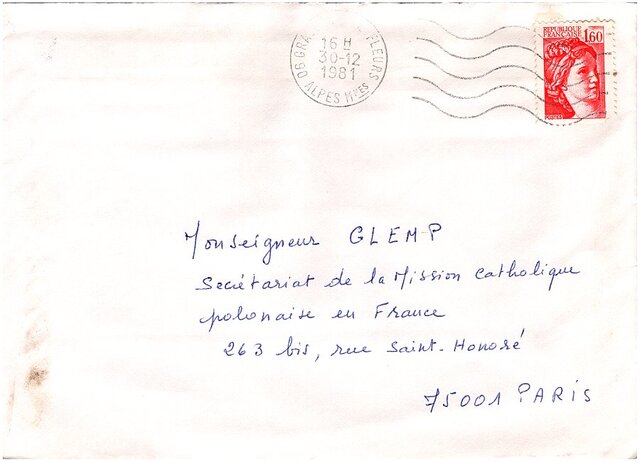 06 GRA FLEURS
16 H
30-12
1981
ALPES Mmes
REPUBLIQUE
FRANCAISE
1,60
Monseigneur GLEMP
Secrétariat de la Mission Catholique
polonaise en France
263 bis, rue Saint-Honoré
75001 PARIS